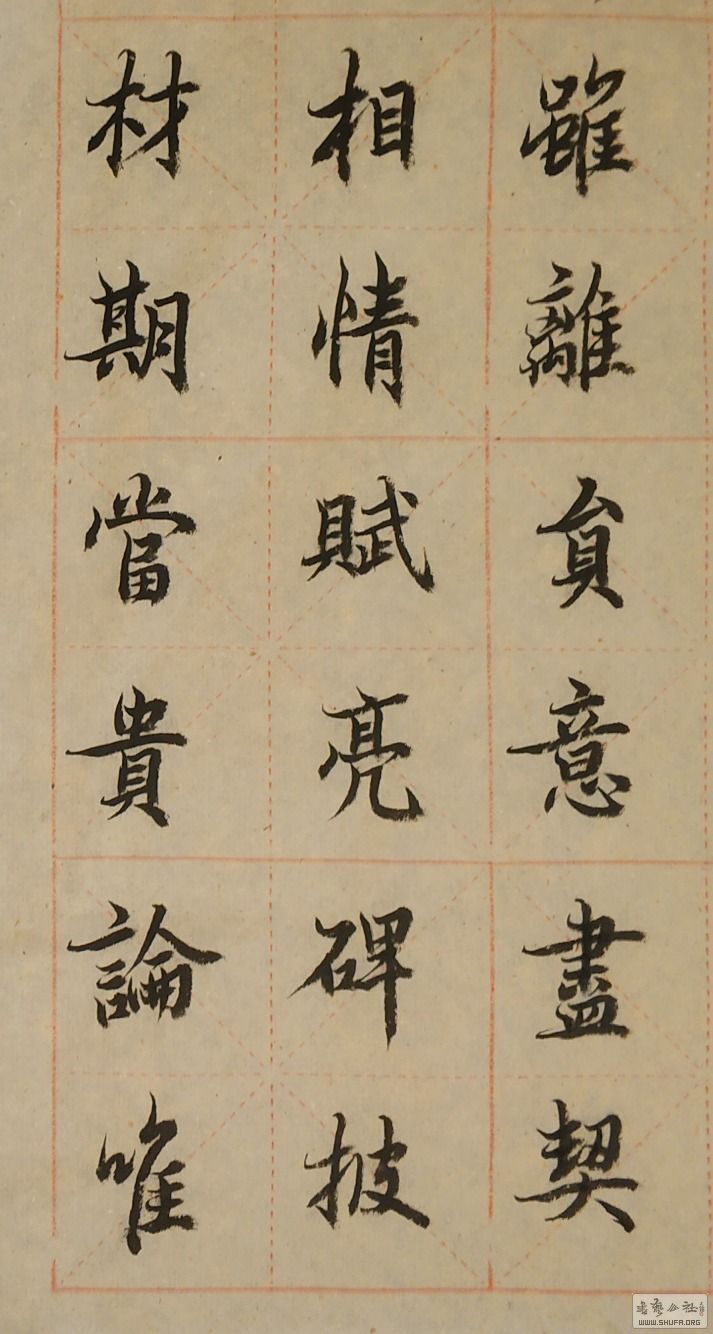 雖離員意盡契
相情賦亮碑披
材期當貴論唯
書藝公社
WWW.SHUFA.ORG